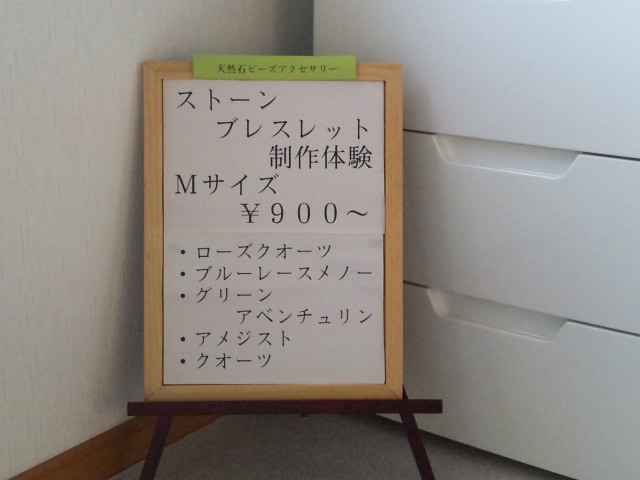 天然石ビーズアクセサリー
ストーン
ブレスレット
制作体験
Mサイズ
¥900~
・ローズクオーツ
・ブルーレースメノー
・グリーン
アベンチュリン
・アメジスト
・クオーツ